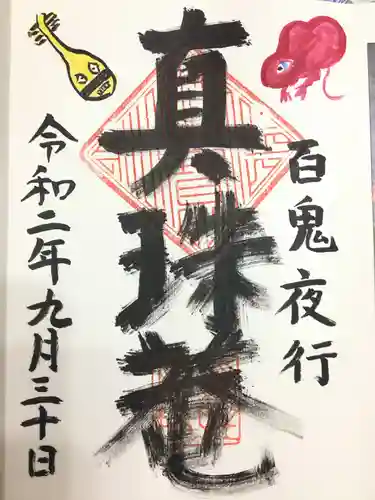 百鬼夜行
真珠菴
令和二年九月三十日